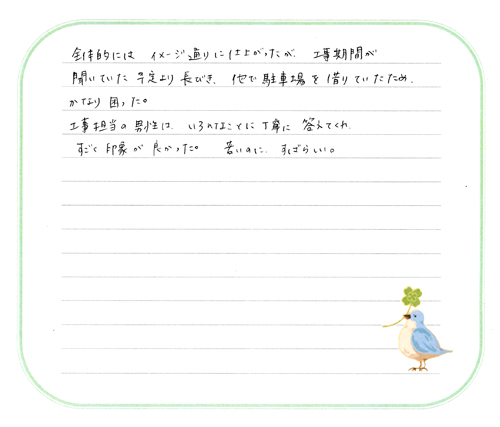 全体的には イメージ通りに仕上がったが、工事期間が
聞いていた予定より長びき、他で駐車場を借りていたため、
かなり困った。
工事担当の男性は、いろんなことに丁寧に答えてくれ、
すごく印象が良かった。 若いのに、すばらしい。